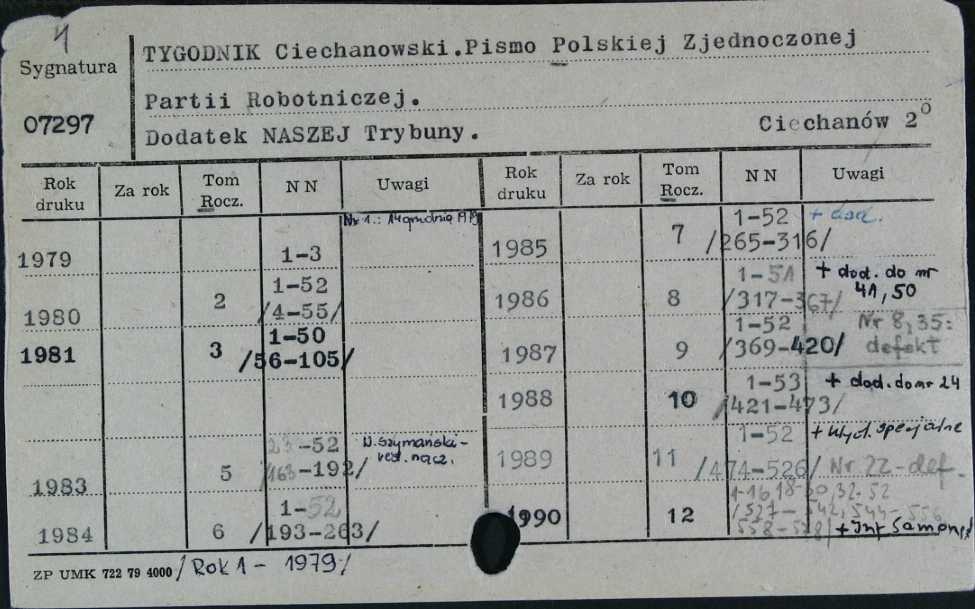 4
Sygnatura
07297
TYGODNIK Ciechanowski.Pismo Polskiej Zjednoczonej
Partii Robotniczej.
Dodatek NASZEJ Trybuny.
Ciechanów 2°
Rok druku Za rok Tom Rocz. NN Uwagi
1979 1-3 Nr 1.: 14 grudnia 1979
1980 2 1-52 /4-55/
1981 3 1-50 /56-105/
1983 5 23-52 /163-192/ W. Szymański- red. nacz.
1984 6 1-52 /193-263/
Rok druku Za rok Tom Rocz. NN Uwagi
1985 7 1-52 /265-316/ + dod.
1986 8 1-51 /317-367/ + dod. do nr 41, 50
1987 9 1-52 /369-420/ Nr 8, 35: defekt
1988 10 1-53 /421-473/ + dod. do nr 24
1989 11 1-52 /474-526/ + wyd. specjalne Nr 22-def.
1990 12 1-16, 18-30, 32-52 /527-542, 544-556
ZP UMK 722 79 4000 / Rok 1 - 1979 /